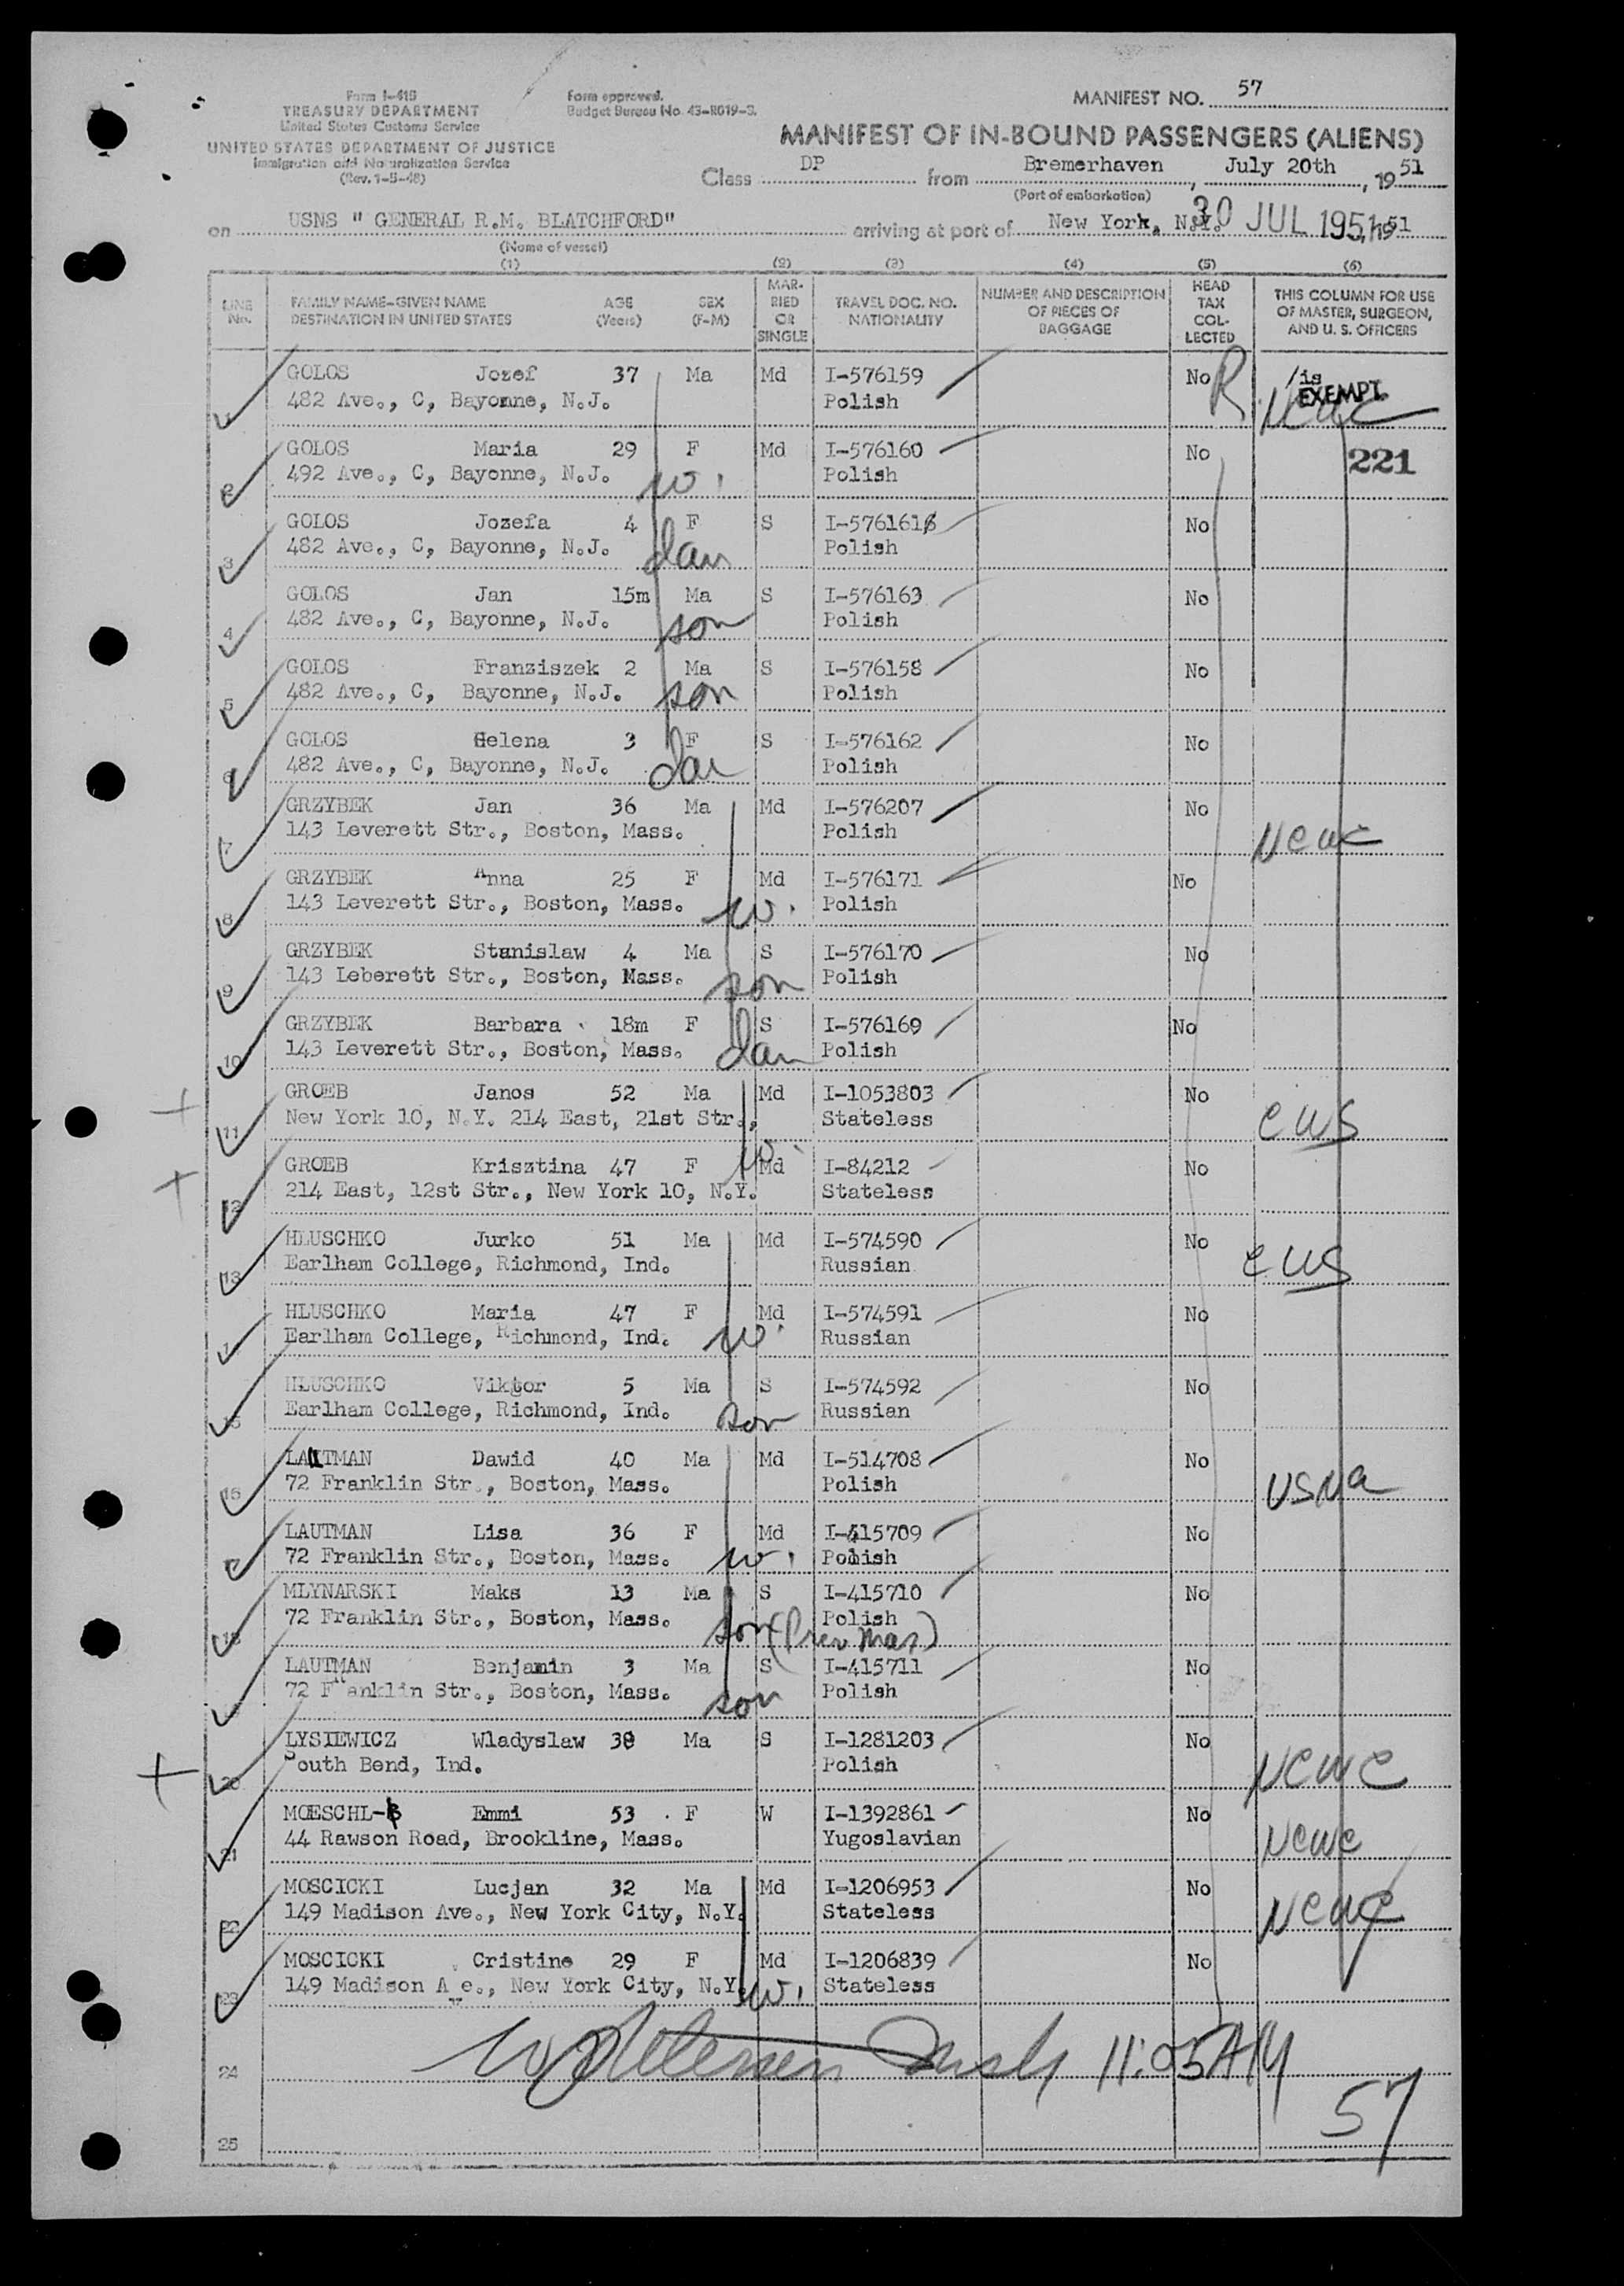 Form I-415
TREASURY DEPARTMENT
United States Customs Service
UNITED STATES DEPARTMENT OF JUSTICE
Immigration and Naturalization Service
(Rev. 1-5-48)
Form approved.
Budget Bureau No. 43-R019-3.
MANIFEST NO. 57
MANIFEST OF IN-BOUND PASSENGERS (ALIENS)
Class DP from Bremerhaven, July 20th, 1951
(Port of embarkation)
on USNS " GENERAL R.M. BLATCHFORD" arriving at port of New York, N.Y. 30 JUL 1951, 1951
(Name of vessel)
(1) (2) (3) (4) (5) (6)
LINE No. FAMILY NAME-GIVEN NAME DESTINATION IN UNITED STATES AGE (Years) SEX (F-M) MARRIED OR SINGLE TRAVEL DOC. NO. NATIONALITY NUMBER AND DESCRIPTION OF PIECES OF BAGGAGE HEAD TAX COLLECTED THIS COLUMN FOR USE OF MASTER, SURGEON, AND U. S. OFFICERS
1 GOLOS Jozef 37 Ma Md I-576159 No R is EXEMPT
482 Ave., C, Bayonne, N.J. Polish newc
2 GOLOS Maria 29 F Md I-576160 No 221
492 Ave., C, Bayonne, N.J. w. Polish
3 GOLOS Jozefa 4 F S I-576161 No
482 Ave., C, Bayonne, N.J. dau Polish
4 GOLOS Jan 15m Ma S I-576163 No
482 Ave., C, Bayonne, N.J. son Polish
5 GOLOS Franziszek 2 Ma S I-576158 No
482 Ave., C, Bayonne, N.J. son Polish
6 GOLOS Helena 3 F S I-576162 No
482 Ave., C, Bayonne, N.J. dau Polish
7 GRZYBEK Jan 36 Ma Md I-576207 No
143 Leverett Str., Boston, Mass. Polish newc
8 GRZYBEK Anna 25 F Md I-576171 No
143 Leverett Str., Boston, Mass. w. Polish
9 GRZYBEK Stanislaw 4 Ma S I-576170 No
143 Leberett Str., Boston, Mass. son Polish
10 GRZYBEK Barbara 18m F S I-576169 No
143 Leverett Str., Boston, Mass. dau Polish
11 GROEB Janos 52 Ma Md I-1053803 No
New York 10, N.Y. 214 East, 21st Str., Stateless cws
12 GROEB Krisztina 47 F w. Md I-84212 No
214 East, 12st Str., New York 10, N.Y. Stateless
13 HLUSCHKO Jurko 51 Ma Md I-574590 No
Earlham College, Richmond, Ind. Russian cws
14 HLUSCHKO Maria 47 F Md I-574591 No
Earlham College, Richmond, Ind. w. Russian
15 HLUSCHKO Viktor 5 Ma S I-574592 No
Earlham College, Richmond, Ind. son Russian
16 LAUTMAN Dawid 40 Ma Md I-514708 No
72 Franklin Str., Boston, Mass. Polish usna
17 LAUTMAN Lisa 36 F Md I-415709 No
72 Franklin Str., Boston, Mass. w. Polish
18 MLYNARSKI Maks 13 Ma S I-415710 No
72 Franklin Str., Boston, Mass. son (Prev mar) Polish
19 LAUTMAN Benjamin 3 Ma S I-415711 No
72 Franklin Str., Boston, Mass. son Polish
20 LYSIEWICZ Wladyslaw 38 Ma S I-1281203 No
South Bend, Ind. Polish newc
21 MOESCHL-B Emmi 53 F W I-1392861 No
44 Rawson Road, Brookline, Mass. Yugoslavian newc
22 MOSCICKI Lucjan 32 Ma Md I-1206953 No
149 Madison Ave., New York City, N.Y. Stateless newc
23 MOSCICKI Cristine 29 F Md I-1206839 No
149 Madison Ave., New York City, N.Y. w. Stateless
24 11:05 AM
25 57